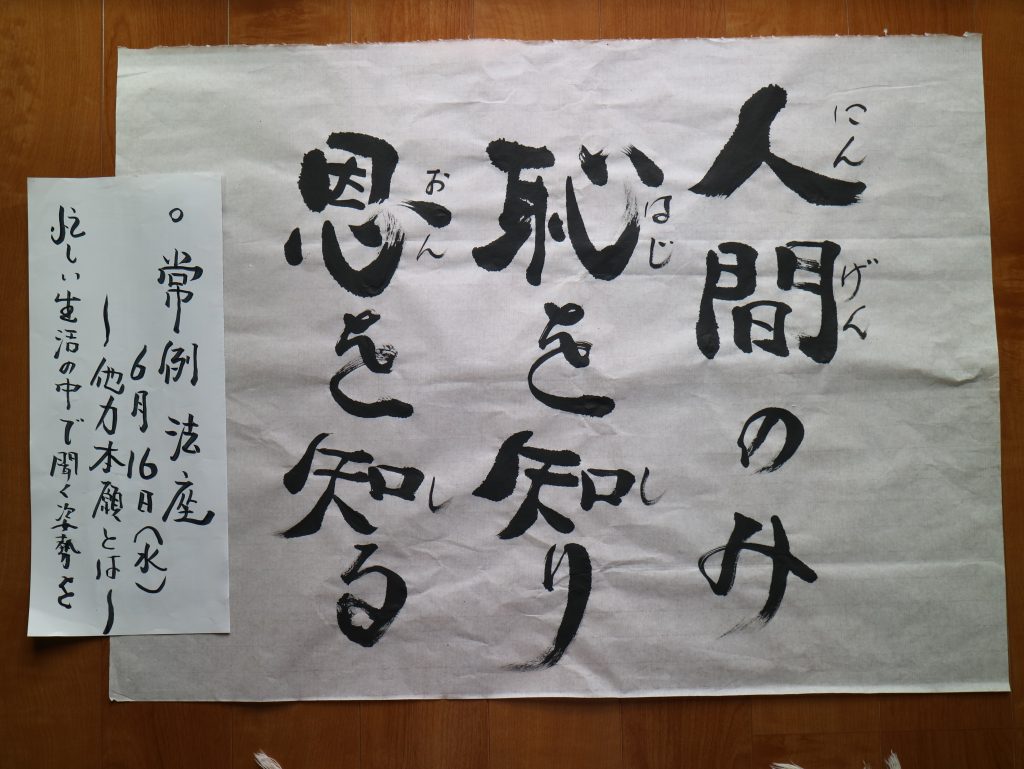 人間のみ
にんげん
恥を知り
はじ
し
恩を知る
おん
し
○常例法座
6月16日(水)
〜他力本願とは〜
忙しい生活の中で聞く姿勢を